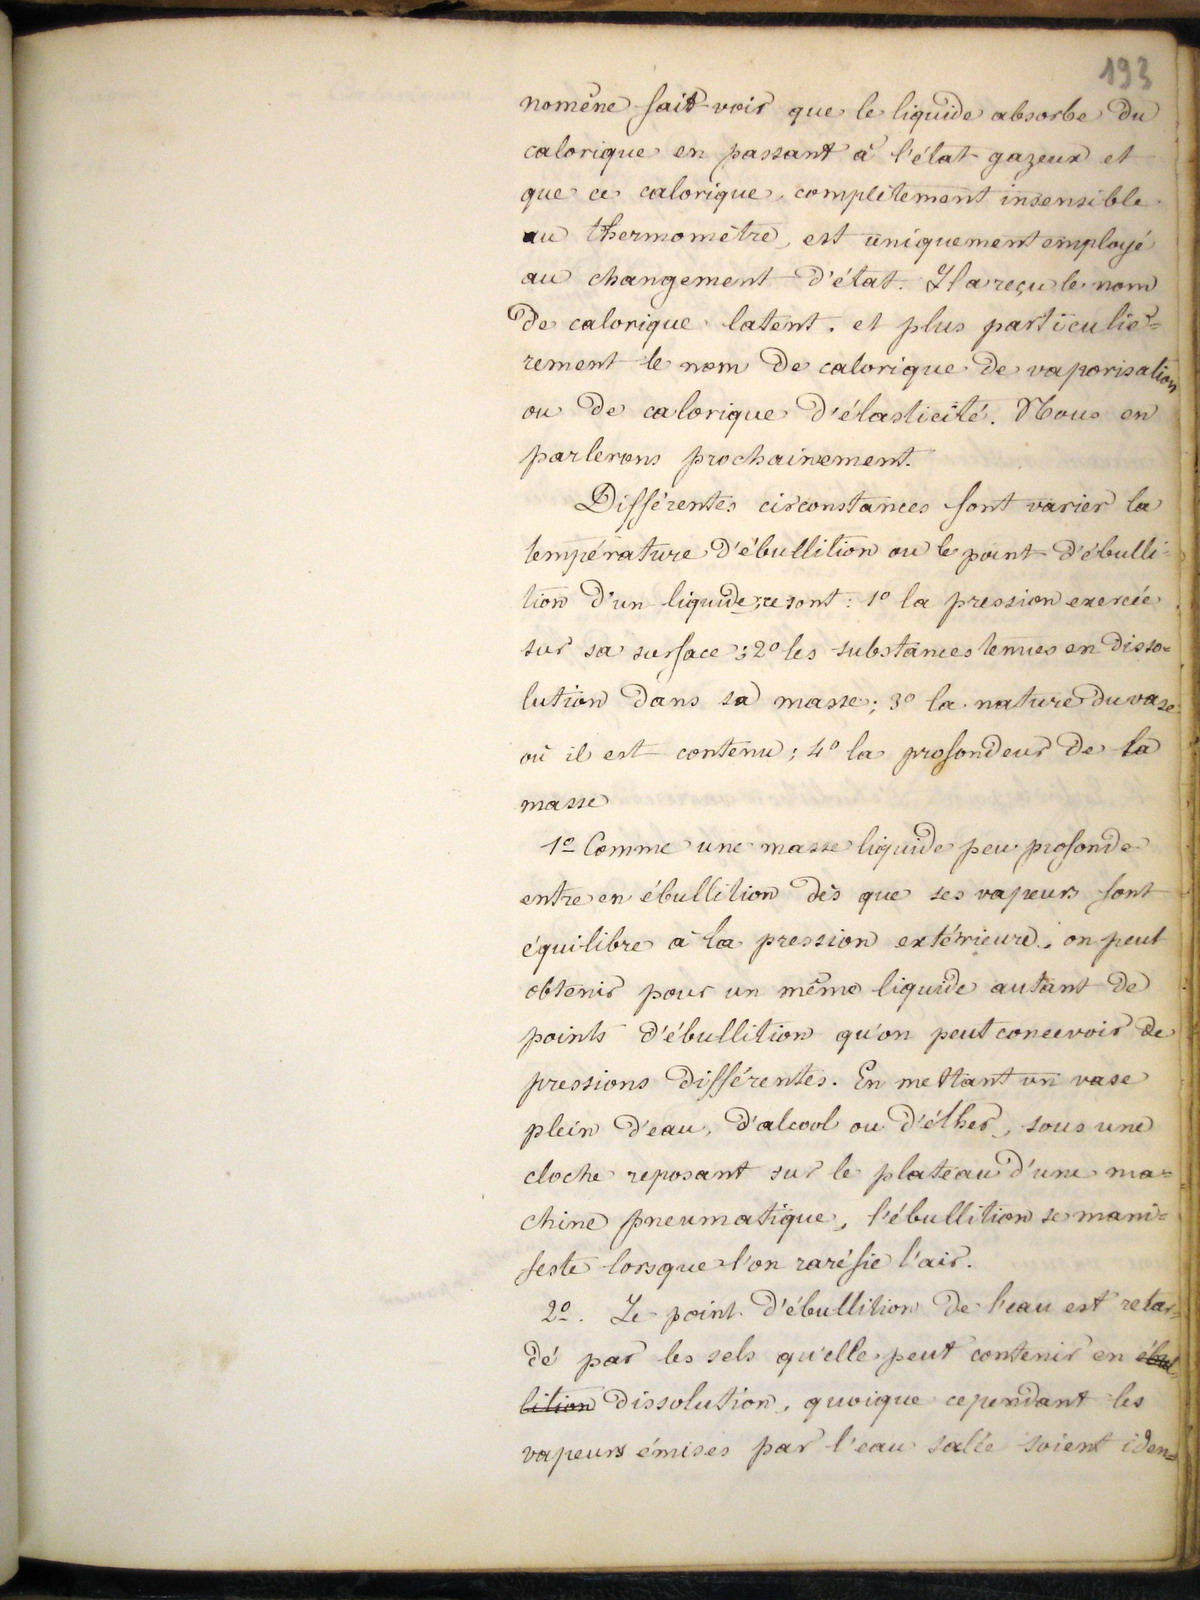 193
nomène fait voir que le liquide absorbe du
calorique en passant à l'état gazeux et
que ce calorique, complètement insensible
au thermomètre, est uniquement employé
au changement d'état. Il a reçu le nom
de calorique latent, et plus particuliè=
rement le nom de calorique de vaporisation
ou de calorique d'élasticité. Nous en
parlerons prochainement.
Différentes circonstances font varier la
température d'ébullition ou le point d'ébulli-
tion d'un liquide; ce sont : 1º la pression exercée
sur sa surface; 2º les substances tenues en disso=
lution dans sa masse; 3º la nature du vase
où il est contenu; 4º la profondeur de la
masse
1º Comme une masse liquide peu profonde
entre en ébullition dès que ses vapeurs font
équilibre à la pression extérieure, on peut
obtenir pour un même liquide autant de
points d'ébullition qu'on peut concevoir de
pressions différentes. En mettant un vase
plein d'eau, d'alcool ou d'éther, sous une
cloche reposant sur le plateau d'une ma=
chine pneumatique, l'ébullition se mani=
feste lorsque l'on raréfie l'air.
2º. Le point d'ébullition de l'eau est retar=
dé par les sels qu'elle peut contenir en ébul
lition dissolution, quoique cependant les
vapeurs émises par l'eau salée soient iden=